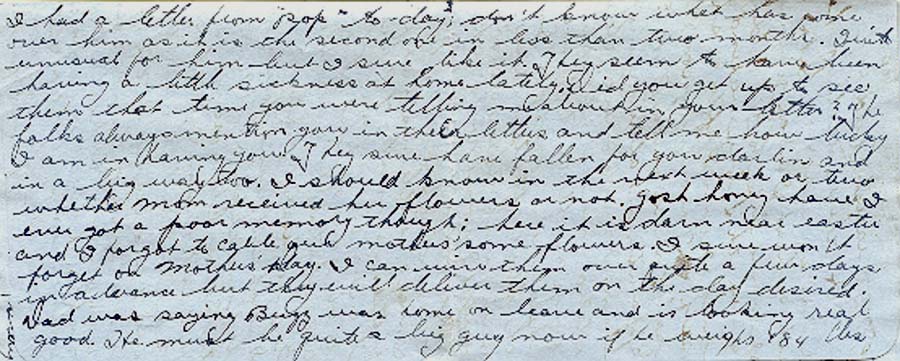 I had a letter from "pop" to-day; don't know what has come
over him as it is the second one in less than two months. Quite
unusual for him but I sure like it. They seem to have been
having a little sickness at home lately. Did you get up to see
them that time you were telling me about in your letter? The
folks always mention you in their letters and tell me how lucky
I am in having you. They sure have fallen for you darlin and
in a big way too. I should know in the next week or two
whether Mom received her flowers or not. Gosh honey have I
ever got a poor memory though; here it is darn near easter
and I forgot to cable our mothers some flowers. I sure won't
forget on Mothers' day. I can wire them over quite a few days
in advance but they will deliver them on the day desired.
Dad was saying Bugg was home on leave and is looking real
good. He must be quite a big guy now if he weighs 184 lbs